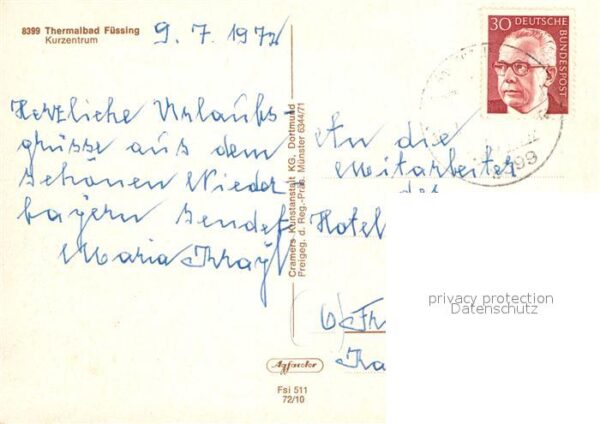 8399 Thermalbad Füssing
Kurzentrum
9. 7. 1972
Herzliche Urlaubs-
grüsse aus dem
schönen Nieder-
bayern sendet
Maria
Cramers Kunstanstalt KG, Dortmund
Freigeg. d. Reg.-Präs. Münster 6344/71
30 DEUTSCHE
BUNDESPOST
An die
Mitarbeiter
des
Hotel
privacy protection
Datenschutz
Agfacolor
Fsi 511
72/10